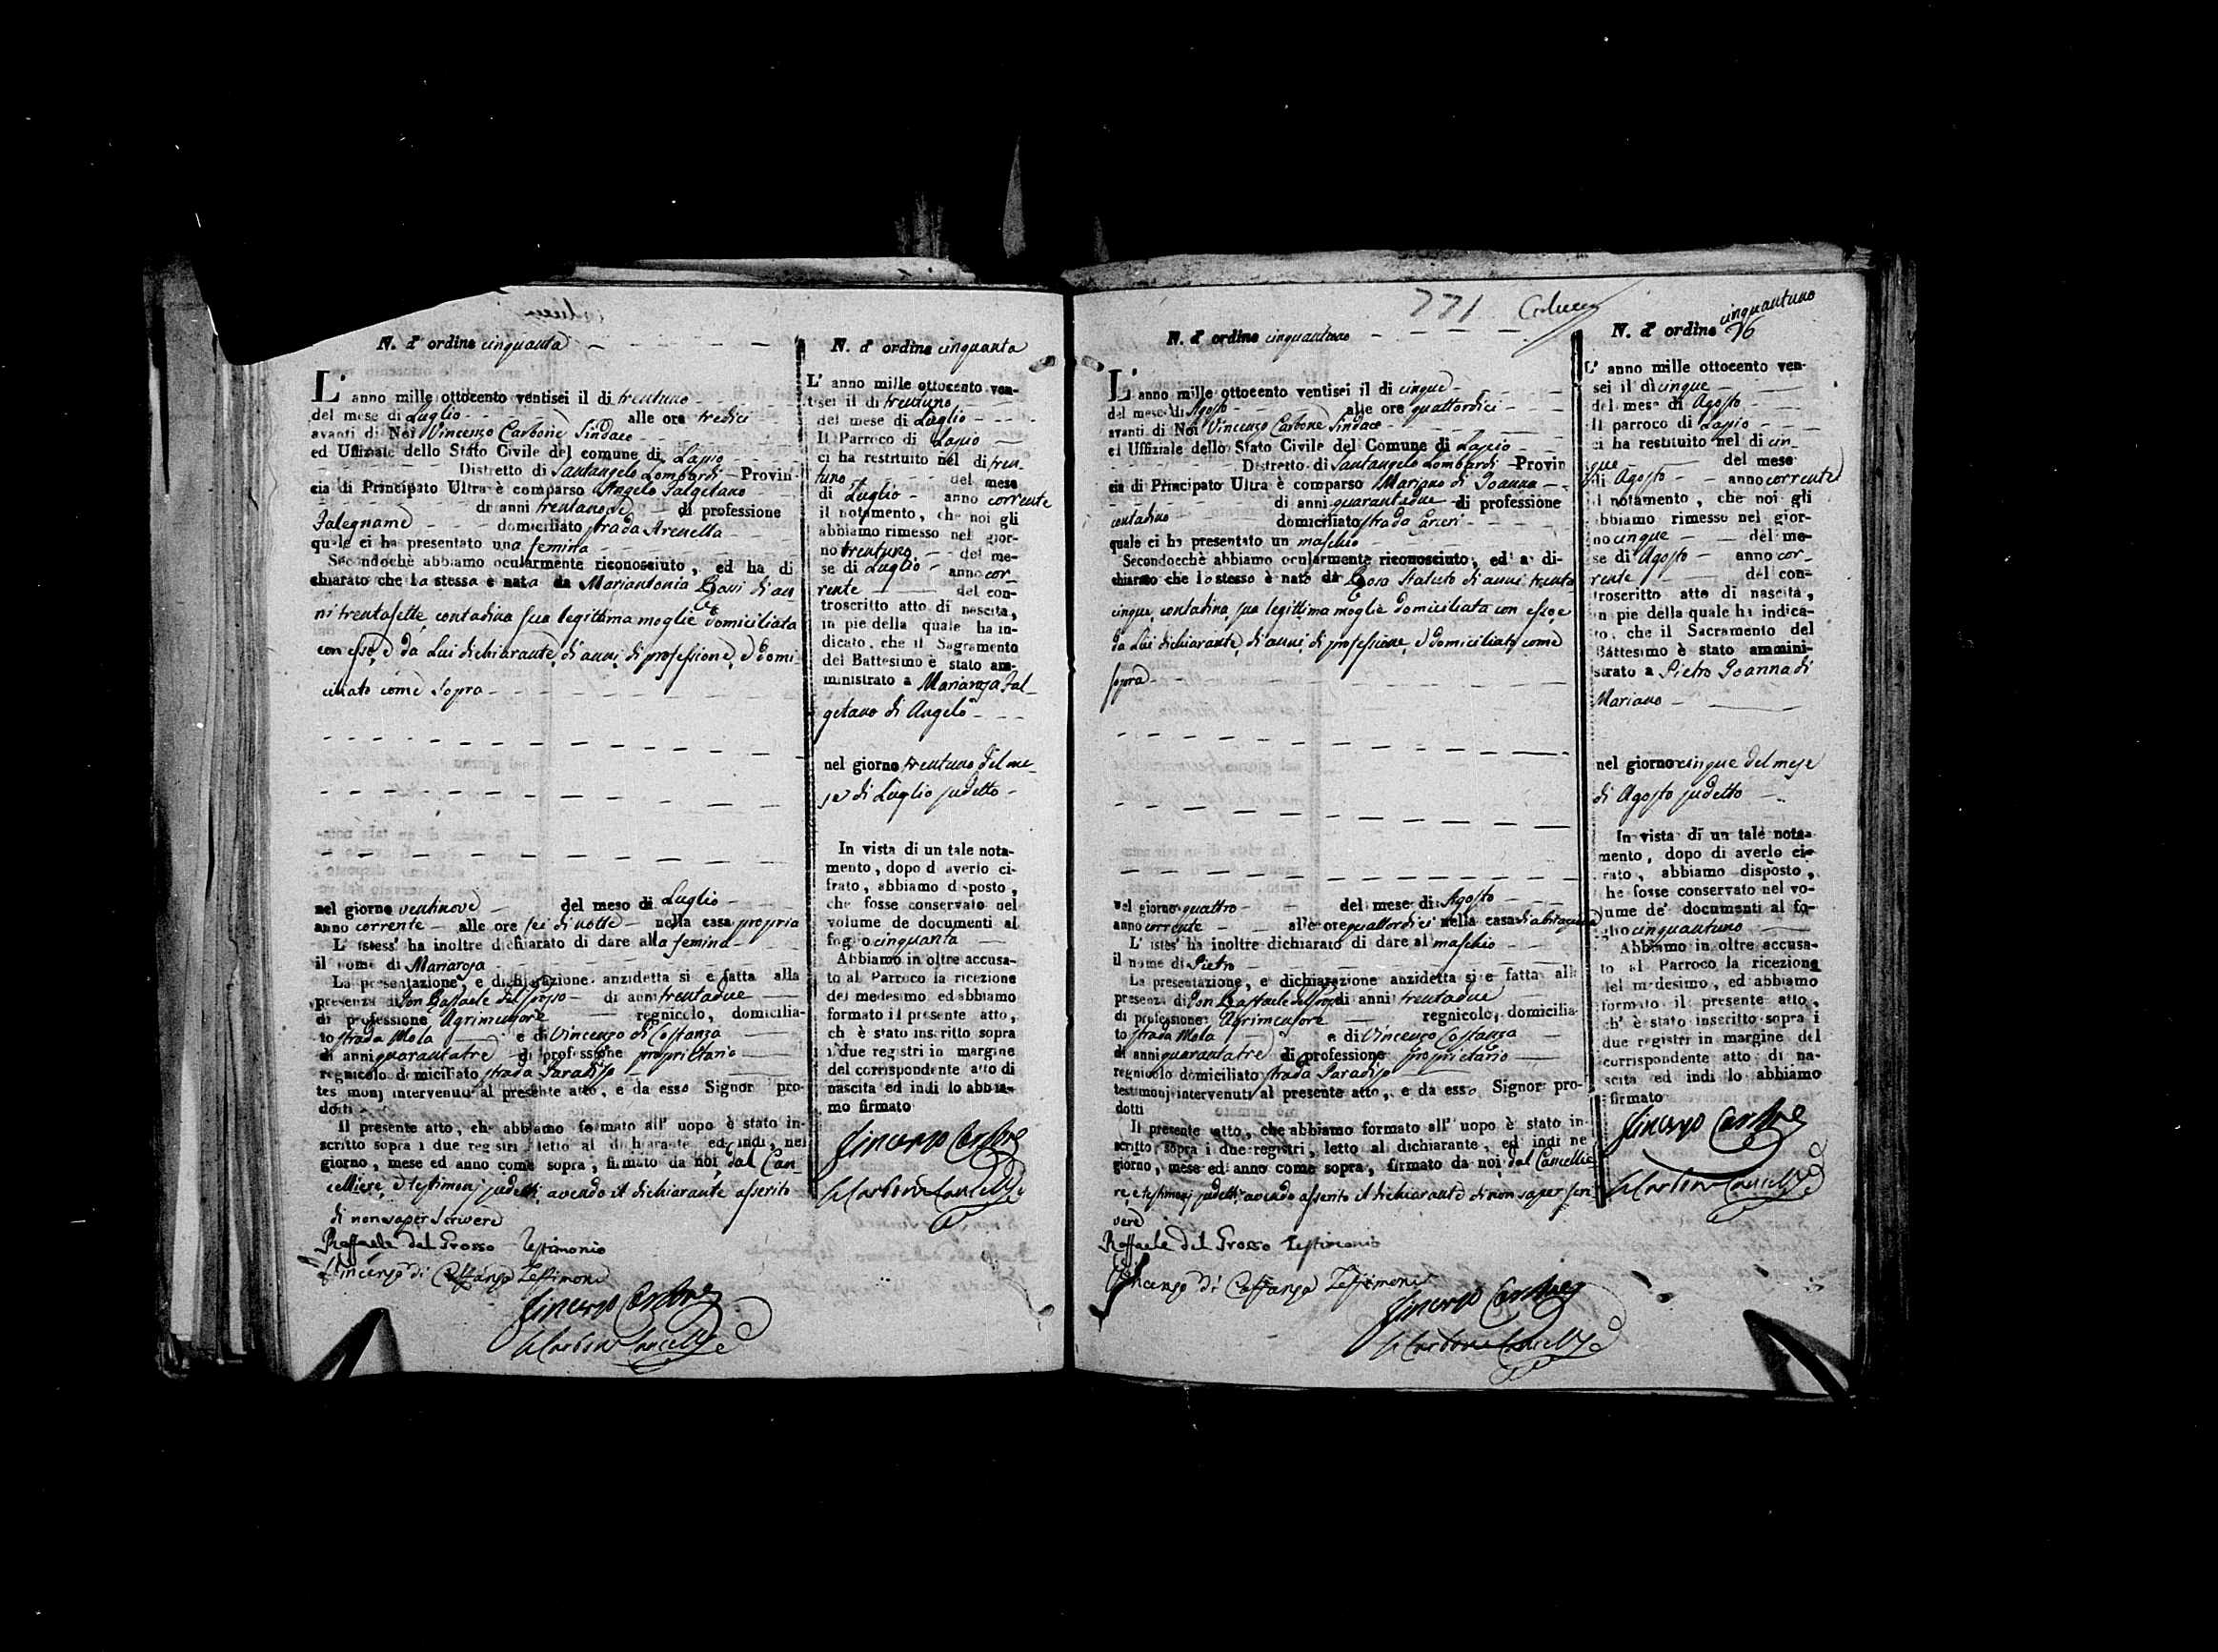 N. d' ordine cinquanta
L' anno mille ottocento ventisei il di trentuno
del mese di Luglio alle ore tredici
avanti di Noi Vincenzo Carbone Sindaco
ed Uffiziale dello Stato Civile del comune di Lapio
Distretto di Santangelo Lombardi Provin-
cia di Principato Ultra è comparso Angelo Falgetano
di anni trentanove di professione
Falegname domiciliato strada Arenella
quale ci ha presentato una femina
Secondochè abbiamo ocularmente riconosciuto, ed ha di
chiarato che la stessa è nata da Mariantonia di an
ni trentasette, contadina sua legittima moglie domiciliata
con esso, e da Lui dichiarante, di anni, di professione, e domi
ciliato come sopra
nel giorno ventinove del mese di Luglio
anno corrente alle ore sei di notte nella casa propria
L' istess' ha inoltre dichiarato di dare alla femina
il nome di Mariarosa
La presentazione, e dichiarazione anzidetta si e fatta alla
presenza di Don Raffaele del Grosso di anni trentadue
di professione Agrimensore regnicolo, domicilia-
to strada Mola e di Vincenzo di Costanza
di anni quarantatre di professione proprietario
regnicolo domiciliato strada Paradiso
testimonj intervenuti al presente atto, e da esso Signor pro-
dotti
Il presente atto, che abbiamo formato all' uopo è stato in-
scritto sopra i due registri letto al dichiarante ed indi, nel
giorno, mese ed anno come sopra, firmato da noi, dal Can-
celliere, e testimonj sudetti, avendo il dichiarante asserito
di non saper scrivere
Raffaele del Grosso Testimonio
Vincenzo di Costanza Testimonio
Vincenzo Carbone
Carbone Cancell.e
N. d' ordine cinquanta
L' anno mille ottocento ven-
tisei il di trentuno
del mese di Luglio
Il Parroco di Lapio
ci ha restituito nel di tren
tuno del mese
di Luglio anno corrente
il notamento, che noi gli
abbiamo rimesso nel gior-
no trentuno del me-
se di Luglio anno cor_
rente del con-
troscritto atto di nascita,
in pie della quale ha in-
dicato, che il Sagramento
del Battesimo è stato am-
ministrato a Mariarosa Fal_
getano di Angelo
nel giorno trentuno del me_
se di Luglio sudetto
In vista di un tale nota-
mento, dopo d averlo ci-
frato, abbiamo disposto,
che fosse conservato nel
volume de documenti al
foglio cinquanta
Abbiamo in oltre accusa-
to al Parroco la ricezione
del medesimo ed abbiamo
formato il presente atto,
ch è stato inscritto sopra
i due registri in margine
del corrispondente atto di
nascita ed indi lo abbia-
mo firmato
Vincenzo Carbone
Carbone Cancell.e
771
N. d' ordine cinquantuno
L' anno mille ottocento ventisei il di cinque
del mese di Agosto alle ore quattordici
avanti di Noi Vincenzo Carbone Sindaco
ed Uffiziale dello Stato Civile del Comune di Lapio
Distretto di Santangelo Lombardi Provin
cia di Principato Ultra è comparso Mariano di Joanna
di anni quarantadue di professione
contadino domiciliato strada
quale ci ha presentato un maschio
Secondocchè abbiamo ocularmente riconosciuto, ed' a di-
chiarato che lo stesso è nato da Rosa Statuto di anni trenta
cinque, contadina, sua legittima moglie domiciliata con esso, e
da Lui dichiarante, di anni, di professione, e domiciliato come
sopra
nel giorno quattro del mese di Agosto
anno corrente alle ore quattordici nella casa di abitazione
L' istes' ha inoltre dichiarato di dare al maschio
il nome di Pietro
La presentazione, e dichiarazione anzidetta si e fatta alla
presenza di Don Raffaele del Grosso di anni trentadue
di professione Agrimensore regnicolo, domicilia-
to strada Mola e di Vincenzo Costanza
di anni quarantatre di professione proprietario
regnicolo domiciliato strada Paradiso
testimonj intervenuti al presente atto, e da esso Signor pro-
dotti
Il presente atto, che abbiamo formato all' uopo è stato in-
scritto sopra i due registri, letto al dichiarante, ed indi ne
giorno, mese ed anno come sopra, firmato da noi, dal Cancellie
re, e testimonj sudetti, avendo asserito il dichiarante di non saper scri
vere
Raffaele del Grosso Testimonio
Vincenzo di Costanza Testimonio
Vincenzo Carbone
Carbone Cancell.e
N. d' ordine cinquantuno
L' anno mille ottocento ven-
sei il di cinque
del mese di Agosto
Il parroco di Lapio
ci ha restituito nel di cin_
que del mese
di Agosto anno corrente
il notamento, che noi gli
abbiamo rimesso nel gior-
no cinque del me-
se di Agosto anno cor_
rente del con-
troscritto atto di nascita,
in pie della quale ha indica-
to, che il Sacramento del
Battesimo è stato ammini-
strato a Pietro Joanna di
Mariano
nel giorno cinque del mese
di Agosto sudetto
In vista di un tale nota-
mento, dopo di averlo ci-
frato, abbiamo disposto,
che fosse conservato nel vo-
lume de' documenti al fo-
glio cinquantuno
Abbiamo in oltre accusa-
to al Parroco la ricezione
del medesimo, ed abbiamo
formato il presente atto,
ch' è stato inscritto sopra i
due registri in margine del
corrispondente atto di na-
scita ed indi lo abbiamo
firmato
Vincenzo Carbone
Carbone Cancell.e